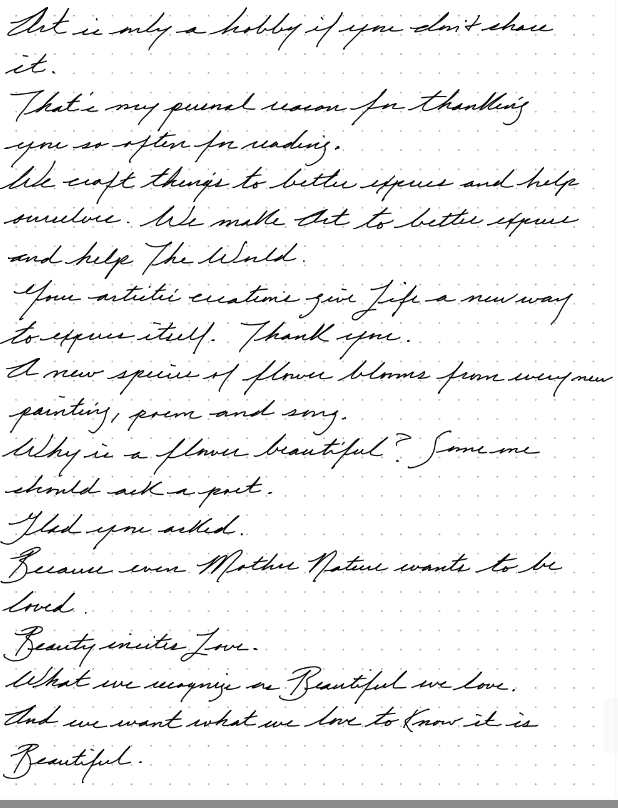 Art is only a hobby if you don't share
it.
That's my personal reason for thanking
you so often for reading.
We craft things to better express and help
ourselves. We make Art to better express
and help The World.
Your artistic creations give Life a new way
to express itself. Thank you.
A new species of flower blooms from every new
painting, poem and song.
Why is a flower beautiful? Someone
should ask a poet.
Glad you asked.
Because even Mother Nature wants to be
loved.
Beauty incites Love.
What we recognize as Beautiful we love.
And we want what we love to Know it is
Beautiful.